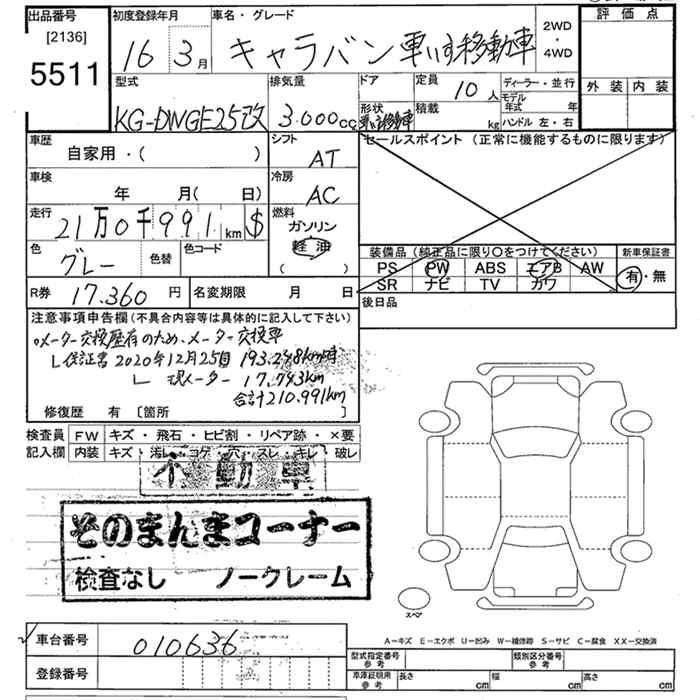 出品番号
[2136]
5511
初度登録年月
16 3月
車名・グレード
キャラバン 車いす移動車
2WD
・
4WD
評価点
外装 内装
型式
KG-DWGE25改
排気量
3.000cc
ドア
形状
車いす移動車
定員
10人
積載
kg
ディーラー・並行
モデル年式 年
ハンドル 左・右
車歴
自家用・( )
シフト
AT
セールスポイント (正常に機能するものに限ります)
車検
年 月( 日)
冷房
AC
走行
21万0千991km $
燃料
ガソリン
軽油
( )
色
グレー
色替
色コード
装備品 (純正品に限り〇をつけてください)
新車保証書
PS PW ABS エアB AW
SR ナビ TV カワ
有・無
R券
17.360円
名変期限 月 日
後日品
注意事項申告欄(不具合内容等は具体的に記入して下さい)
○メーター交換歴有のため、メーター交換車
└保証書 2020年12月25日 193.248km時
└ 現メーター 17.743km
合計210.991km
修復歴 有 [箇所 ]
検査員 FW キズ・飛石・ヒビ割・リペア跡・×要
記入欄 内装 キズ・汚レ・コゲ・穴・スレ・キレ・破レ
不動車
そのまんまコーナー
検査なし ノークレーム
スペア
車台番号
010636
登録番号
A－キズ E－エクボ U－凹み W－補修跡 S－サビ C－腐食 XX－交換済
型式指定番号
参考
類別区分番号
参考
車庫証明用
参考
長さ cm 幅 cm 高さ cm